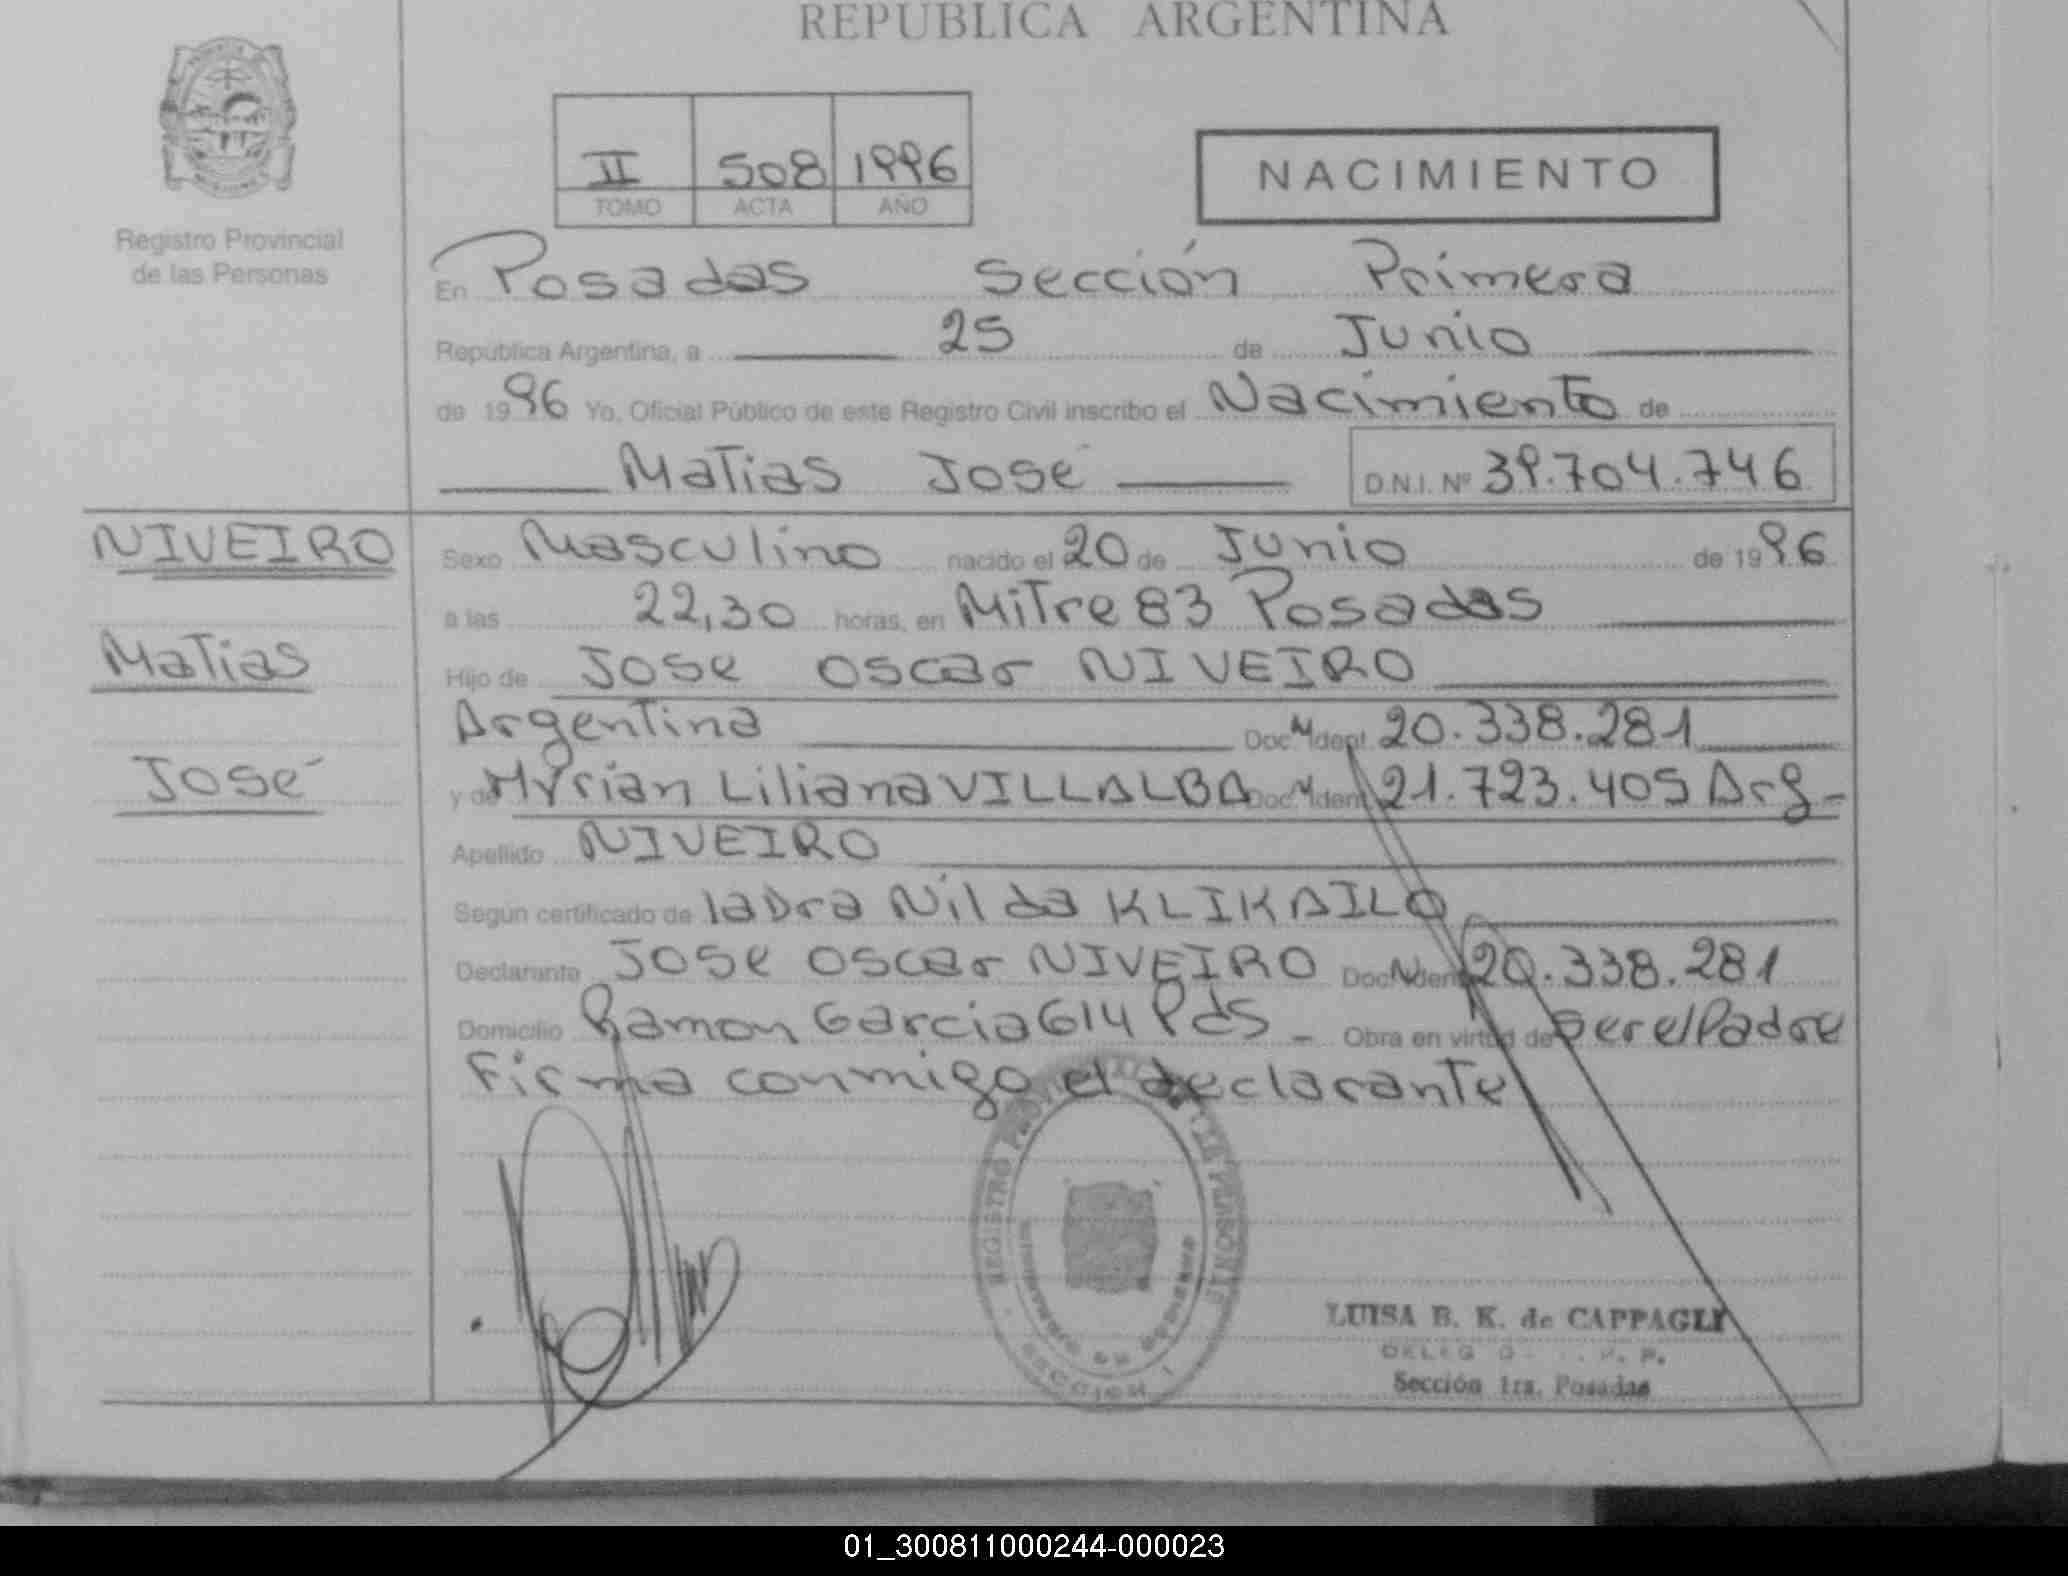 REPUBLICA ARGENTINA
II 508 1996
TOMO ACTA AÑO
NACIMIENTO
Registro Provincial
de las Personas
En Posadas Sección Primera
República Argentina, a 25 de Junio
de 1996 Yo, Oficial Público de este Registro Civil inscribo el Nacimiento de
Matias José D.N.I. Nº 39.704.746
NIVEIRO
Matias
José
Sexo Masculino nacido el 20 de Junio de 1996
a las 22,30 horas, en Mitre 83 Posadas
Hijo de Jose Oscar NIVEIRO
Argentina Doc. Ident. 20.338.281
y de Myrian Liliana VILLALBA Doc. Ident. 21.723.405 Arg-
Apellido NIVEIRO
Según certificado de la Dra Nilda KLIKAILO
Declarante Jose Oscar NIVEIRO Doc. Ident. 20.338.281
Domicilio Ramon Garcia 614 Pds - Obra en virtud de ser el Padre
Firma conmigo el declarante
REGISTRO
SECCION 1
LUISA B. K. de CAPPAGLI
Sección 1ra. Posadas
01_300811000244-000023